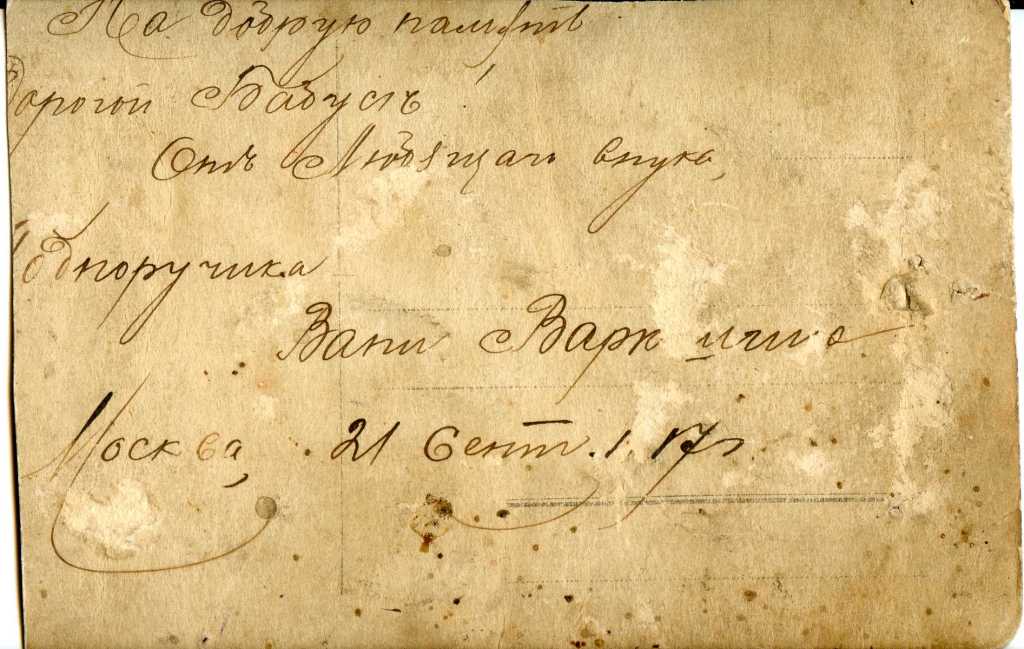 На добрую память
дорогой Бабусѣ
Отъ Любящаго внука,
Подпоручика
Вани
Москва, 21 Сент. 1. 17г.